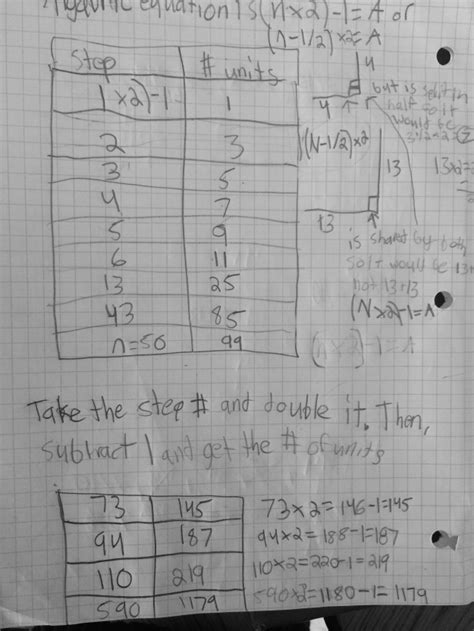 Algebraic equation is (n×2)-1=A or
(n-1/2)×2=A
Step # units
1×2)-1 1
2 3
3 5
4 7
5 9
6 11
13 25
43 85
n=50 99
4
4
but is split in
half so it
would be
(N-1/2)×2
13
13
is shared by both
so it would be
not 13+13
(N×2)-1=A
(n×2)-1=A
Take the step # and double it. Then,
subtract 1 and get the # of units
73 145 73×2=146-1=145
94 187 94×2=188-1=187
110 219 110×2=220-1=219
590 1179 590×2=1180-1=1179